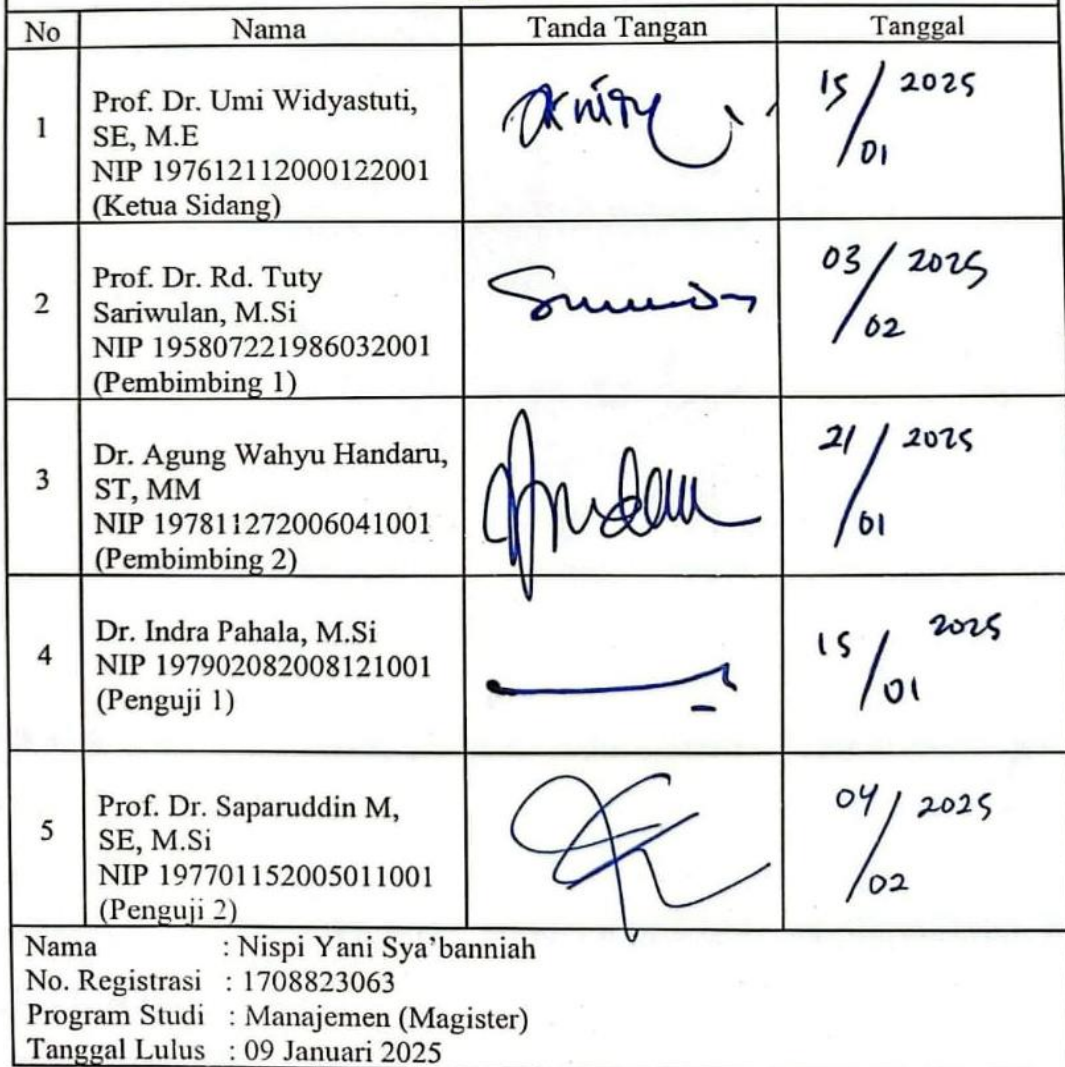 No Nama Tanda Tangan Tanggal
1
Prof. Dr. Umi Widyastuti,
SE, M.E
NIP 197612112000122001
(Ketua Sidang)
15/01 2025
2
Prof. Dr. Rd. Tuty
Sariwulan, M.Si
NIP 195807221986032001
(Pembimbing 1)
03/02 2025
3
Dr. Agung Wahyu Handaru,
ST, MM
NIP 197811272006041001
(Pembimbing 2)
21/01 2025
4
Dr. Indra Pahala, M.Si
NIP 197902082008121001
(Penguji 1)
15/01 2025
5
Prof. Dr. Saparuddin M,
SE, M.Si
NIP 197701152005011001
(Penguji 2)
04/02 2025
Nama : Nispi Yani Sya'banniah
No. Registrasi : 1708823063
Program Studi : Manajemen (Magister)
Tanggal Lulus : 09 Januari 2025